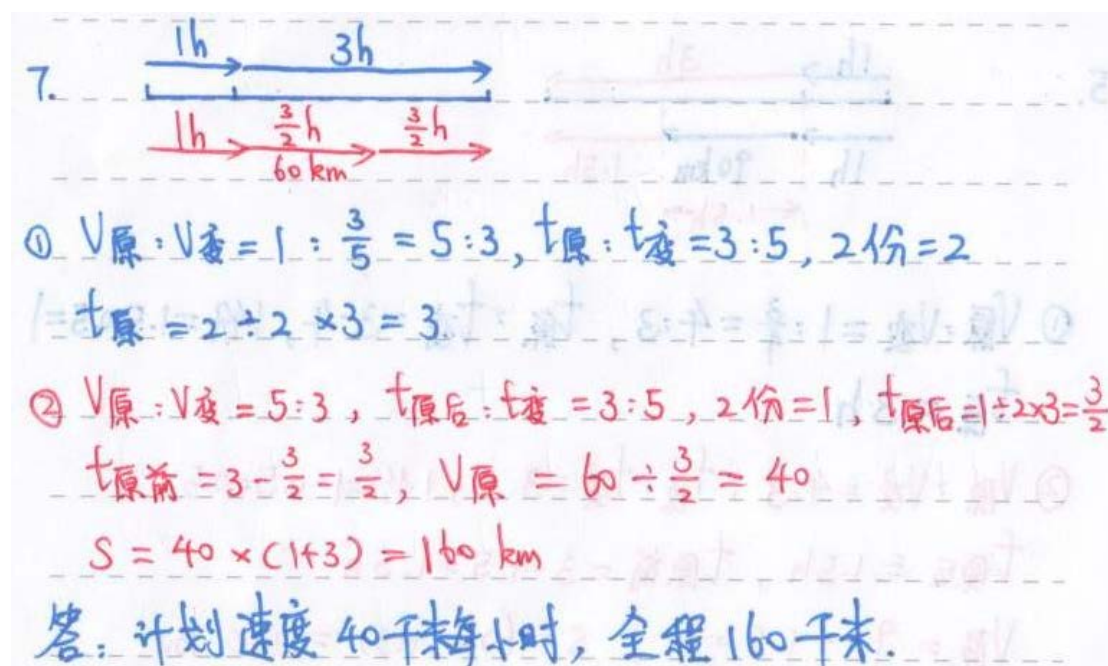 7.
1h 3h
1h 3/2 h 3/2 h
60 km
① V原:V变=1:3/5=5:3, t原:t变=3:5, 2份=2
t原=2÷2×3=3.
② V原:V变=5:3, t原后:t变=3:5, 2份=1, t原后=1÷2×3=3/2
t原前=3-3/2=3/2, V原=60÷3/2=40
S=40×(1+3)=160 km
答:计划速度40千米每小时,全程160千米.